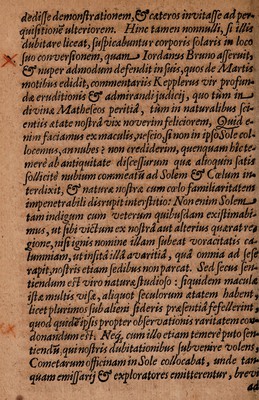 dedisse demonstrationem, & cæteros invitasse ad per-
quisitionē ulteriorem. Hinc tamen nonnulli, si illis
dubitare liceat, suspicabuntur corporis solaris in loco
suo conversionem, quam Iordanus Bruno asseruit,
& nuper admodum defendit in suis, quos de Martis
motibus edidit, commentarijs Kepplerus vir profun-
dæ eruditionis & admirandi judicij, quo tùm in
divinæ Matheseos peritiâ, tùm in naturalibus sci-
entijs ætate nostrâ vix noverim feliciorem. Quid e-
nim faciamus ex maculis, nescio, si non in ipso Sole col-
locemus, an nubes? non crediderim, quenquam hic te-
merè ab antiquitate discessurum quæ alioquin satis
sollicitè nubium commeatū ad Solem & Cœlum in-
terdixit, & naturæ nostræ cum cœlo familiaritatem
impenetrabili disrupit interstitio: Non enim Solem
tam indigum cum veterum quibusdam existimabi-
mus, ut sibi victum ex nostrâ aut alterius quærat re-
gione, nisi ignis nomine illam subeat voracitatis ca-
lumniam, ut insitâ illâ avaritiâ, quâ omnia ad sese
rapit, nostris etiam sedibus non parcat. Sed secus sen-
tiendum est viro naturæ studioso: siquidem maculæ
istæ multis visæ, aliquot seculorum ætatem habent,
licet plurimos sub alieni sideris præsentiâ fefellerint,
quod quidē ipsis propter observationis raritatem con-
donandum est. Neq, cum illo etiam temerè puto sen-
tiendū, qui nostris dubitationibus subvenire volens,
Cometarum officinam in Sole collocabat, unde tan-
quam emissarij & exploratores emitterentur, brevi
ad